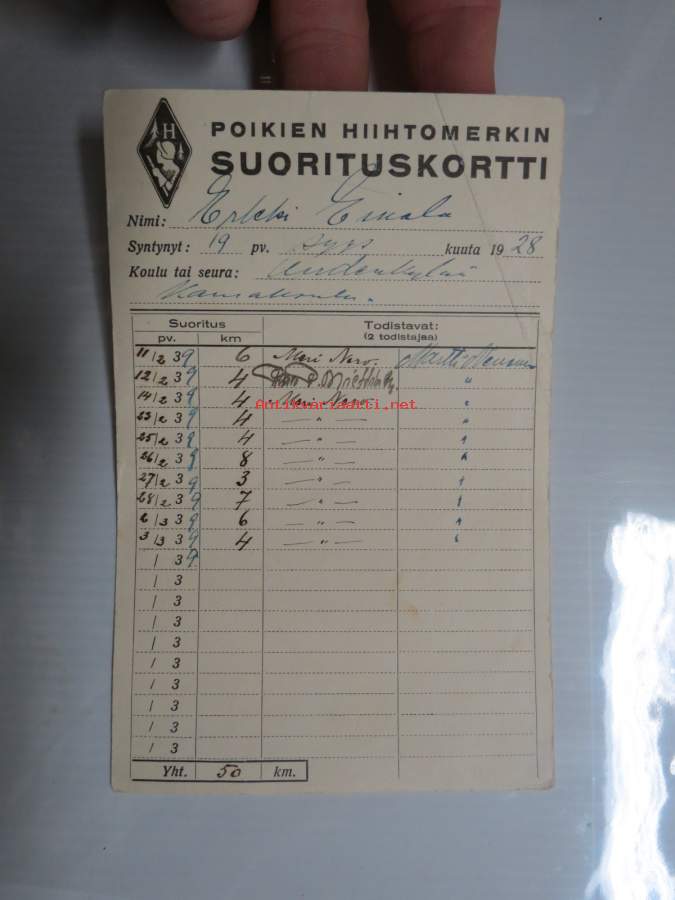 H
POIKIEN HIIHTOMERKIN
SUORITUSKORTTI
Nimi: Erkki Einola
Syntynyt: 19 pv. syys kuuta 1928
Koulu tai seura: Uudenkylän
Kansakoulu.
Suoritus Todistavat:
pv. km (2 todistajaa)
11/2 39 6 Meri Narvo. Martti
12/2 39 4 P. Miettinen "
14/2 39 4 Meri Narvo "
Antikvariaatti.net
23/2 39 4 — " — "
25/2 39 4 — " — "
26/2 39 8 — " — "
27/2 39 3 — " — "
28/2 39 7 — " — "
2/3 39 6 — " — "
3/3 39 4 — " — "
/ 39
/ 3
/ 3
/ 3
/ 3
/ 3
/ 3
/ 3
/ 3
/ 3
Yht. 50 km.